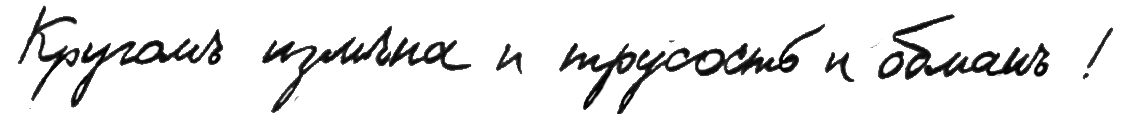 Кругомъ измѣна и трусость и обманъ!